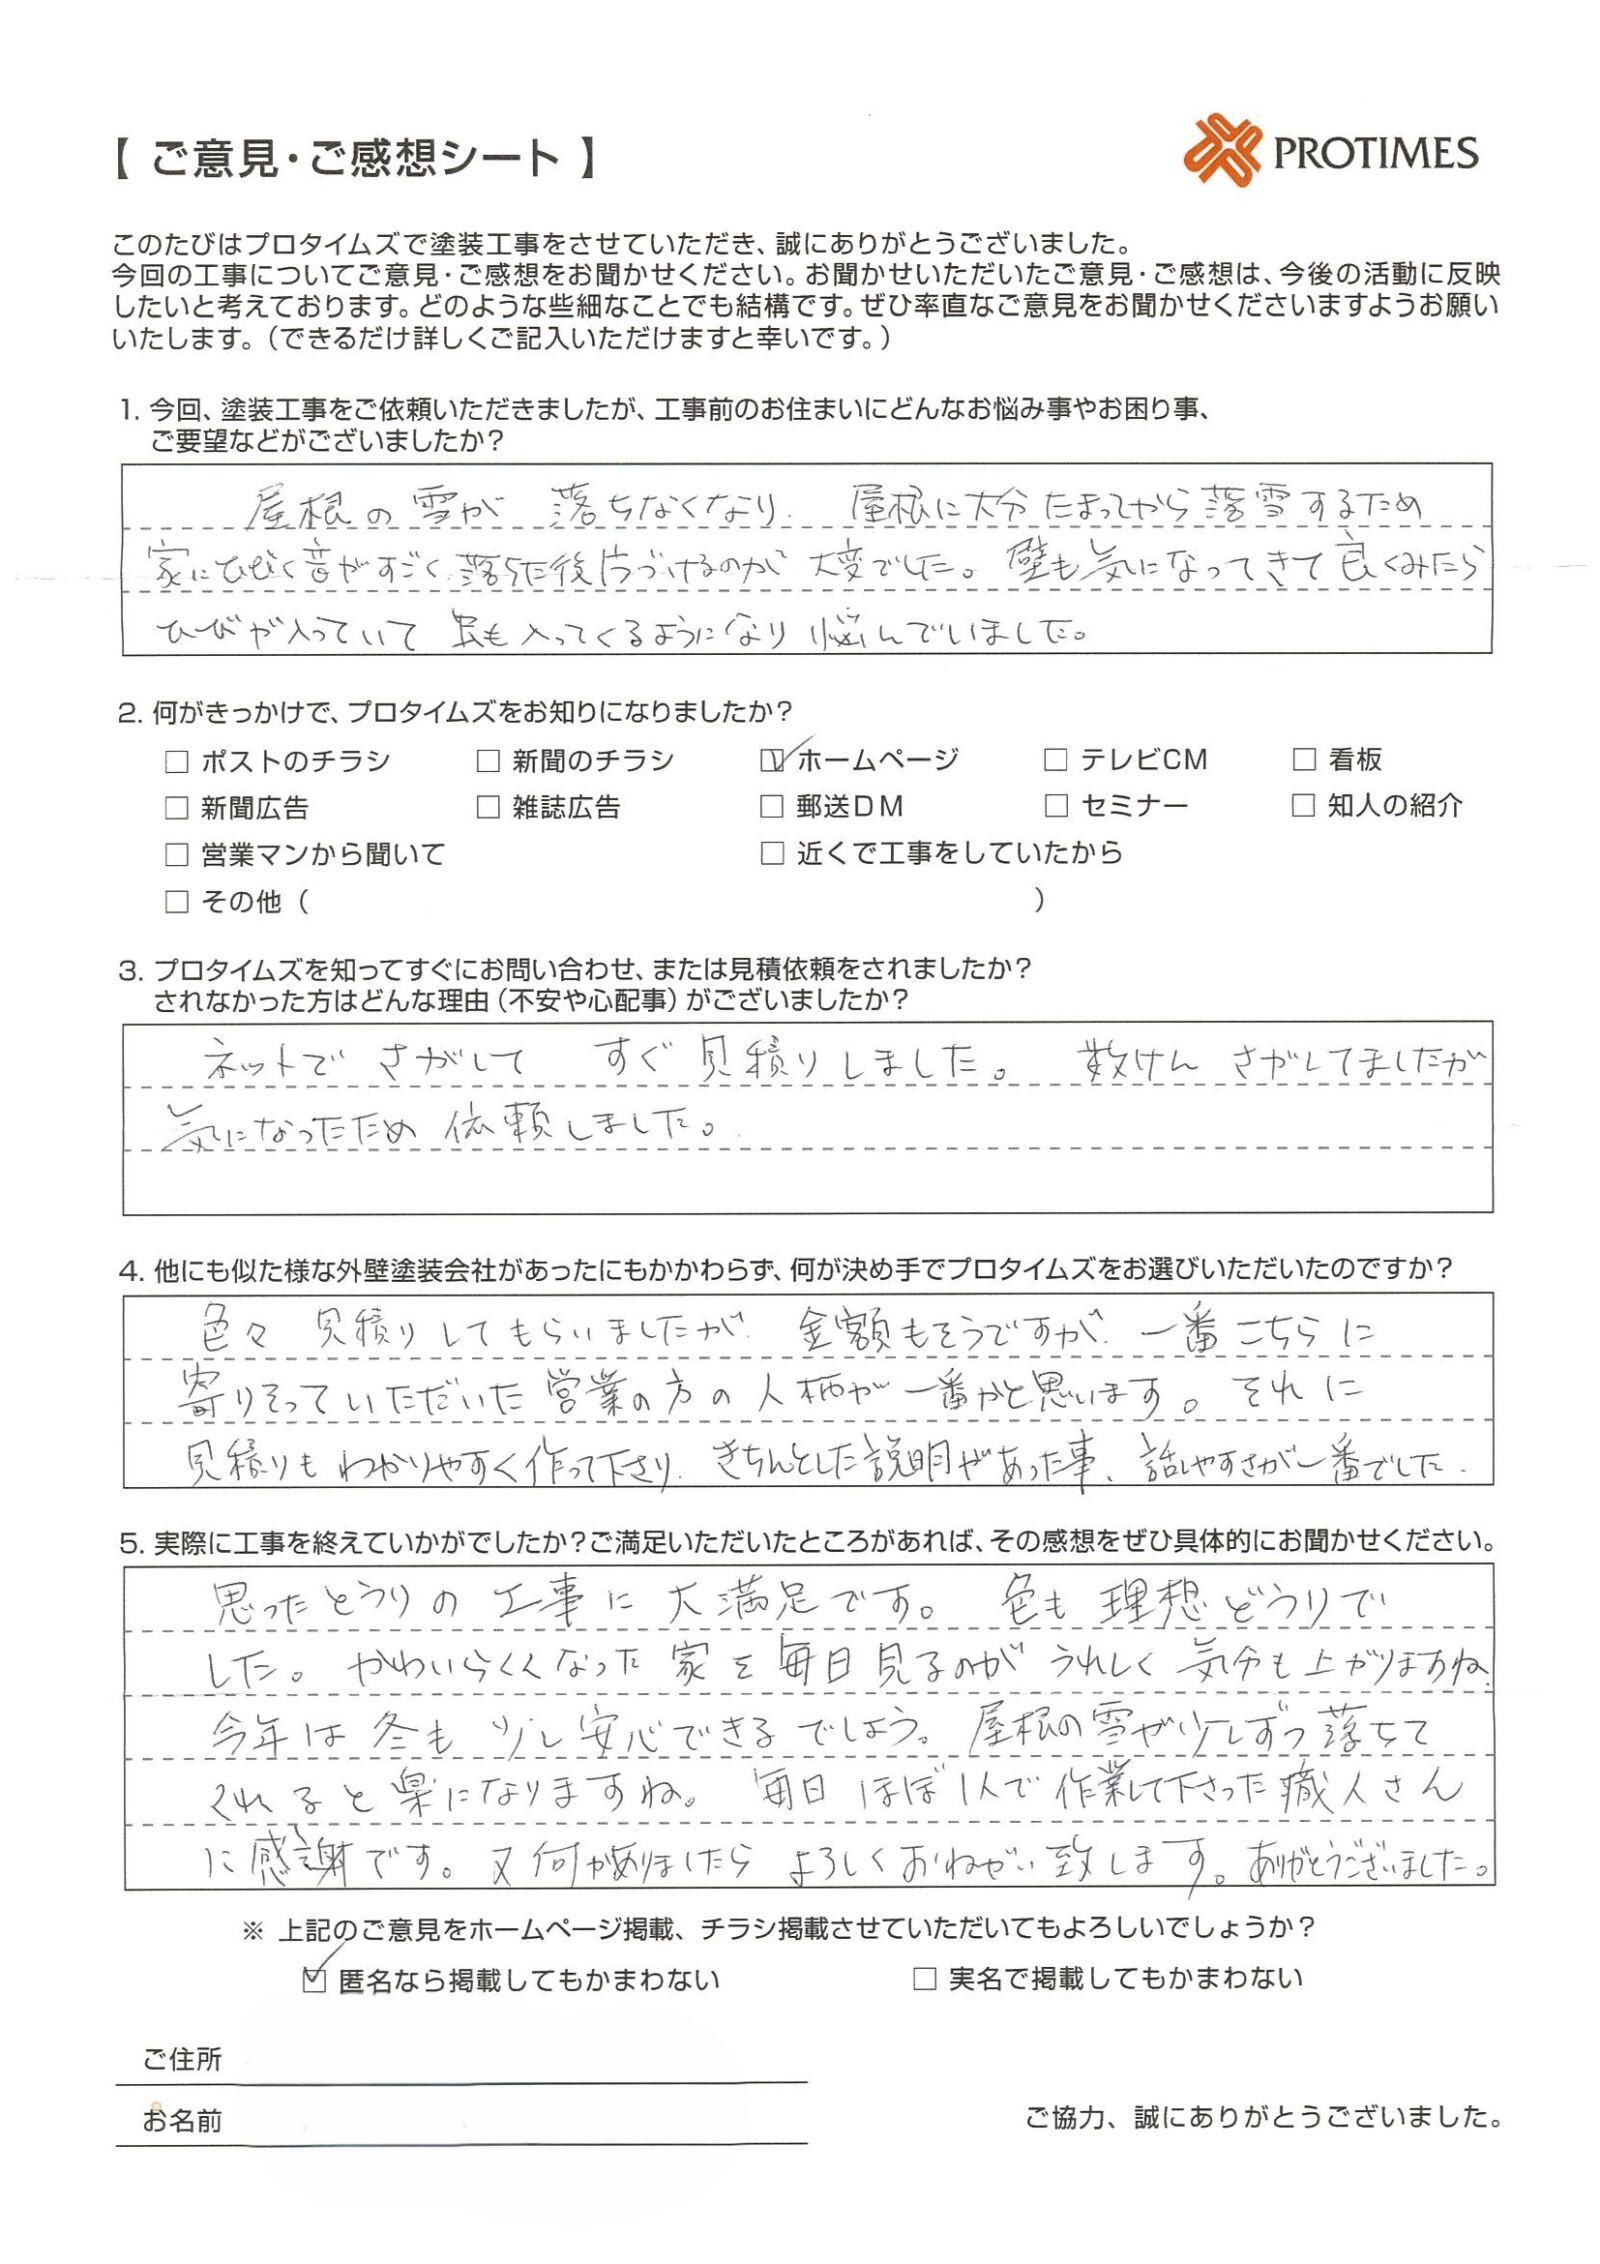 【 ご意見・ご感想シート 】
PROTIMES
このたびはプロタイムズで塗装工事をさせていただき、誠にありがとうございました。
今回の工事についてご意見・ご感想をお聞かせください。お聞かせいただいたご意見・ご感想は、今後の活動に反映
したいと考えております。どのような些細なことでも結構です。ぜひ率直なご意見をお聞かせくださいますようお願い
いたします。（できるだけ詳しくご記入いただけますと幸いです。）
1. 今回、塗装工事をご依頼いただきましたが、工事前のお住まいにどんなお悩み事やお困り事、
ご要望などがございましたか？
屋根の雪が 落ちなくなり、屋根に大分たまってから落雪するため
家にひびく音がすごく、落ちた後片づけるのが 大変でした。壁も気になってきて良くみたら
ひびが入っていて 虫も入ってくるようになり 悩んでいました。
2. 何がきっかけで、プロタイムズをお知りになりましたか？
□ ポストのチラシ □ 新聞のチラシ ☑ ホームページ □ テレビCM □ 看板
□ 新聞広告 □ 雑誌広告 □ 郵送DM □ セミナー □ 知人の紹介
□ 営業マンから聞いて □ 近くで工事をしていたから
□ その他（ ）
3. プロタイムズを知ってすぐにお問い合わせ、または見積依頼をされましたか？
されなかった方はどんな理由（不安や心配事）がございましたか？
ネットで さがして すぐ 見積りしました。 数けん さがしてましたが
気になったため 依頼しました。
4. 他にも似た様な外壁塗装会社があったにもかかわらず、何が決め手でプロタイムズをお選びいただいたのですか？
色々 見積りしてもらいましたが、金額もそうですが、一番こちらに
寄りそっていただいた 営業の方の人柄が一番かと思います。それに
見積りも わかりやすく作って下さり、きちんとした説明があった事、話しやすさが一番でした。
5. 実際に工事を終えていかがでしたか？ご満足いただいたところがあれば、その感想をぜひ具体的にお聞かせください。
思ったとうりの 工事に 大満足です。 色も 理想どうりで
した。かわいらくなった 家を毎日見るのが うれしく 気分も上がりますね。
今年は 冬も 少し安心できるでしょう。屋根の雪が少しずつ落ちて
くれると楽になりますね。 毎日 ほぼ1人で作業して下さった職人さん
に感謝です。又何かありましたら よろしくおねがい致します。ありがとうございました。
※ 上記のご意見をホームページ掲載、チラシ掲載させていただいてもよろしいでしょうか？
☑ 匿名なら掲載してもかまわない □ 実名で掲載してもかまわない
ご住所
お名前
ご協力、誠にありがとうございました。